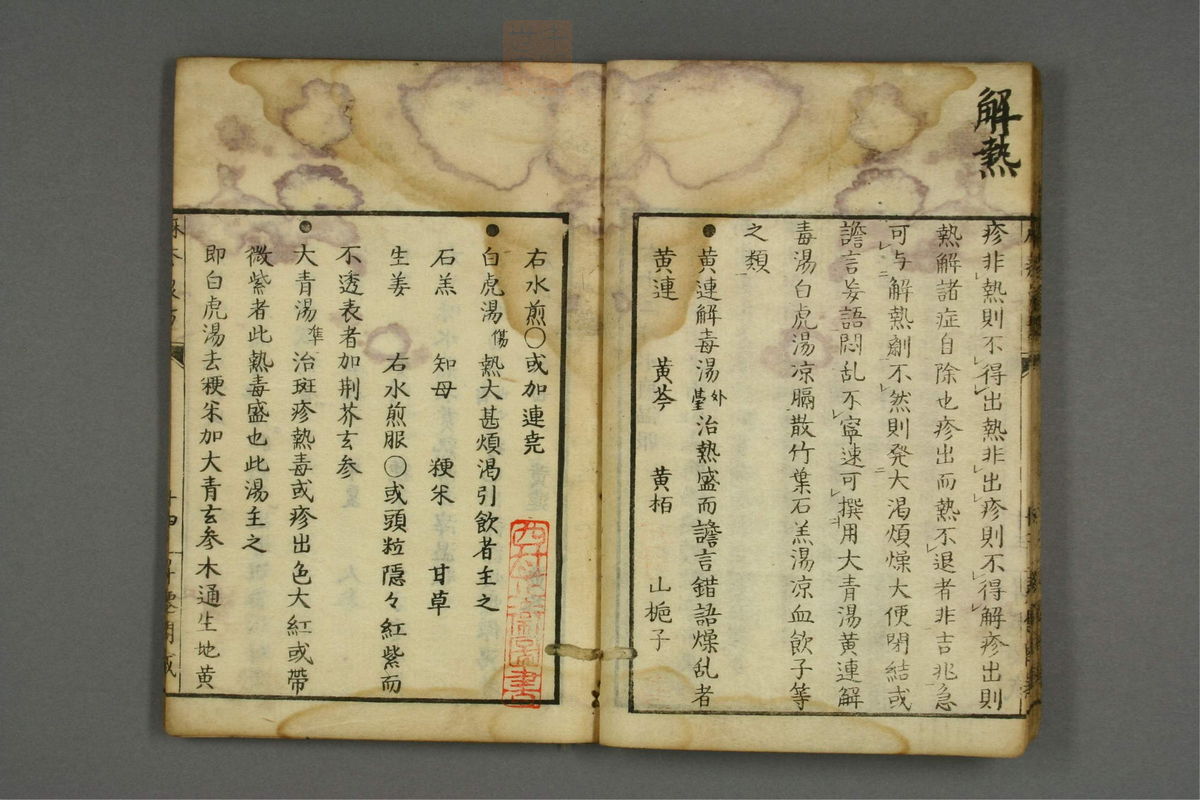 解熱
疹非熱則不得出熱非出疹則不得解疹出則
熱解諸症自除也疹出而熱不退者非吉兆急
可与解熱劑不然則発大渇煩燥大便閉結或
譫言妄語悶乱不寧速可撰用大青湯黄連解
毒湯白虎湯凉膈散竹葉石羔湯凉血飲子等
之類
●黄連解毒湯外臺治熱盛而譫言錯語燥乱者
黄連 黄芩 黄栢 山梔子
右水煎○或加連壳
●白虎湯傷熱大甚煩渇引飲者主之
石羔 知母 粳米 甘草
生姜 右水煎服○或頭粒隠々紅紫而
不透表者加荆芥玄参
●大青湯準治斑疹熱毒或疹出色大紅或帶
微紫者此熱毒盛也此湯主之
即白虎湯去粳米加大青玄参木通生地黄